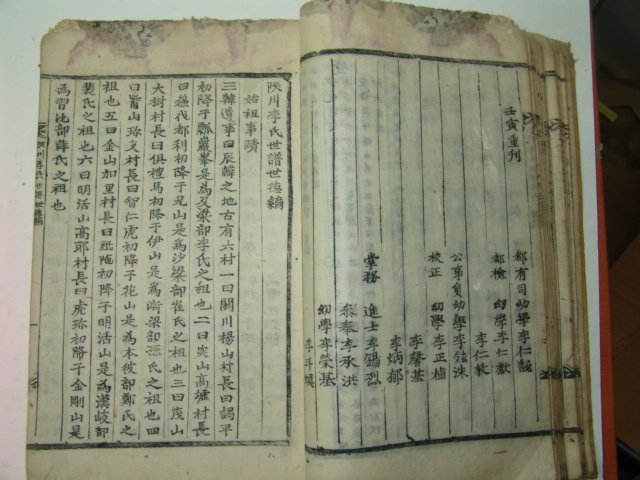 壬寅重刊
都有司幼學李仁
都檢 幼學李仁
李仁教
公事員幼學李鉉洙
校正 幼學李正植
李馨基
李炳郁
掌務 進士李錫烈
參奉李承洪
幼學李榮基
李斗
陜川李氏世譜世德編
始祖事蹟
三韓遺事曰辰韓之地古有六村一曰閼川楊山村長曰謁平
初降于瓢巖峯是爲及梁部李氏之祖也二曰突山高墟村長
曰蘇伐都利初降于兄山是爲沙梁部崔氏之祖也三曰茂山
大樹村長曰俱禮馬初降于伊山是爲漸梁部孫氏之祖也四
曰觜山珍支村長曰智仁虎初降于花山是爲本彼部鄭氏之
祖也五曰金山加里村長曰祗陁初降于明活山是爲漢岐部
裴氏之祖也六曰明活山高耶村長曰虎珍初降于金剛山是
爲習比部薛氏之祖也